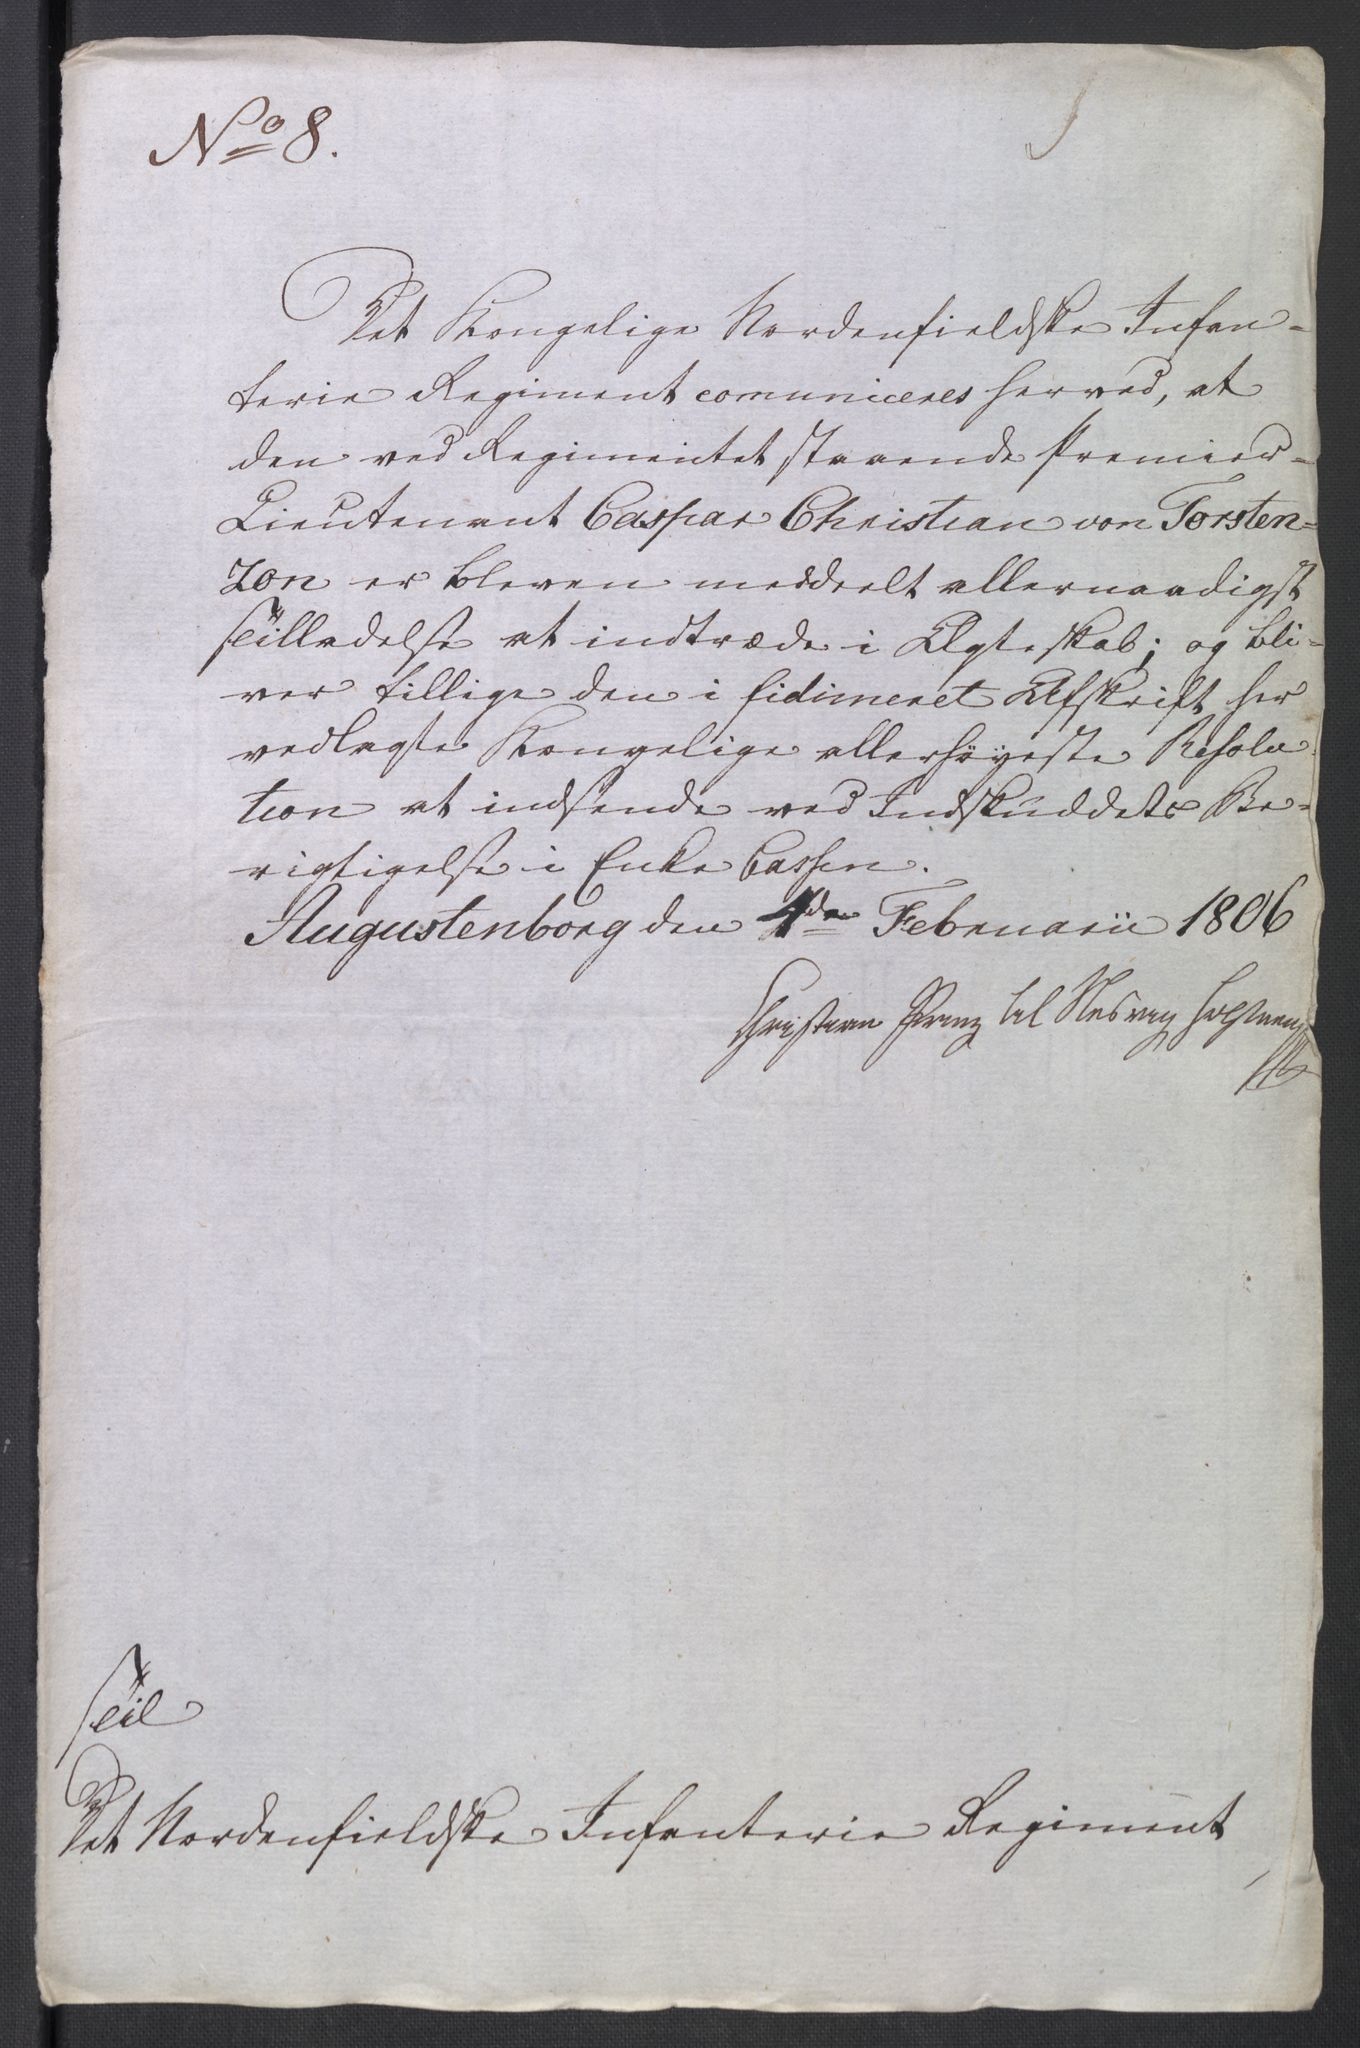 No 8.
Det Kongelige Nordenfieldske Infan-
terie Regiment comuniceres herved, at
den ved Regimentet staaende Premier-
Lieutenant Caspar Christian von Torsten-
zon er bleven meddeelt allernaadigst
Tilladelse at indtræde i Ægteskab; og bli-
ver tillige den i fidimeret Afskrift her
vedlagte Kongelige allerhöyeste Resolu
tion at indsende ved Indskuddets Be-
rigtigelse i Enke Cassen.
Augustenborg den 4de Februarii 1806
Christian Prinz til Slesvig Holsteen
Til
Det Nordenfieldske Infanterie Regiment